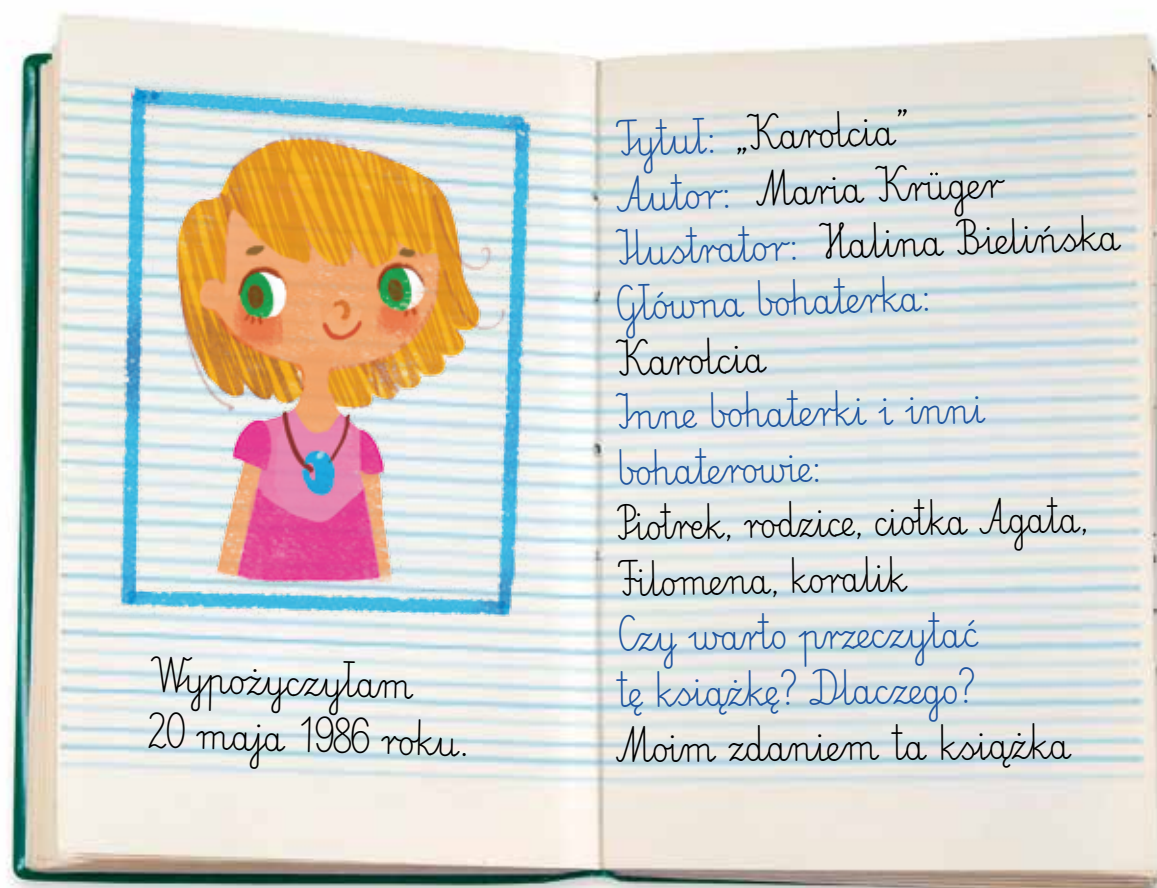 Wypożyczyłam
20 maja 1986 roku.
Tytuł: „Karolcia”
Autor: Maria Krüger
Ilustrator: Halina Bielińska
Główna bohaterka:
Karolcia
Inne bohaterki i inni
bohaterowie:
Piotrek, rodzice, ciotka Agata,
Filomena, koralik
Czy warto przeczytać
tę książkę? Dlaczego?
Moim zdaniem ta książka